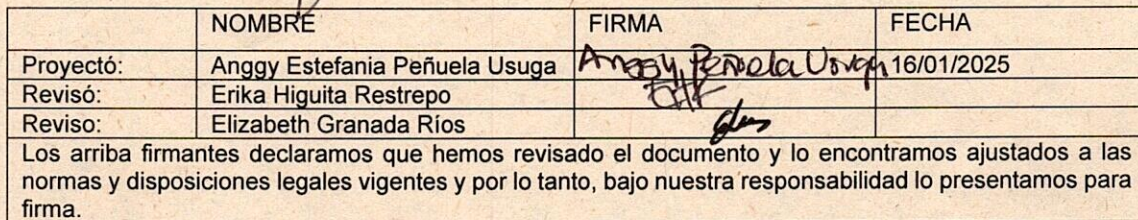 NOMBRE FIRMA FECHA
Proyectó: Anggy Estefania Peñuela Usuga Anggy Peñuela Usuga 16/01/2025
Revisó: Erika Higuita Restrepo EHR
Reviso: Elizabeth Granada Ríos
Los arriba firmantes declaramos que hemos revisado el documento y lo encontramos ajustados a las
normas y disposiciones legales vigentes y por lo tanto, bajo nuestra responsabilidad lo presentamos para
firma.